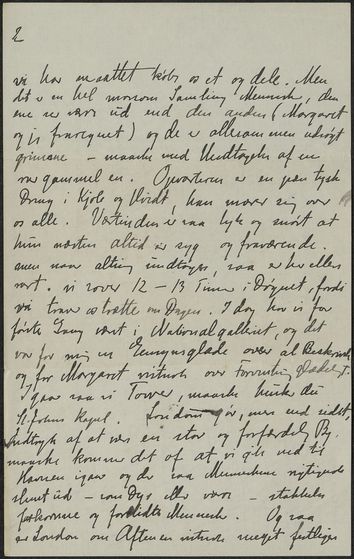 2
vi har maattet købe os et og dele. Men
det er en hel morsom Samling Mennesker, den
ene er værre ud end den anden (Margaret
og jeg fraregnet) og de er allesammen udsøgt
grimme – maaske med Undtagelse af en
var gammel en. Opvarteren er en pæn tysk
Dreng i Kjole og Hvidt, han morer sig over
os alle. Værtinden er saa tyk og snørt at
hun næsten altid er syg og fraværende.
men naar alting undtages, saa er her ellers
rart. Vi sover 12 – 13 Timer i Døgnet, fordi
vi traver os trætte om Dagen. I dag har vi for
første Gang været i Nationalgalleriet, og det
var for mig en Gensynsglæde over al Beskrivelse
og for Margaret naturligvis over Forventning
I gaar saa vi Tower, maaske husker du
St. Johns Kapel. London gør, mer end sidst,
Indtryk af at være en stor og forfærdelig By.
maaske kommer det af at vi gik ned til
Havnen igaar og der saa Menneskene rigtignok
slemt ud – som Dyr eller værre – stakkels
forkomne og Mennesker. Og saa
er London om Aftenen naturligvis meget festligere